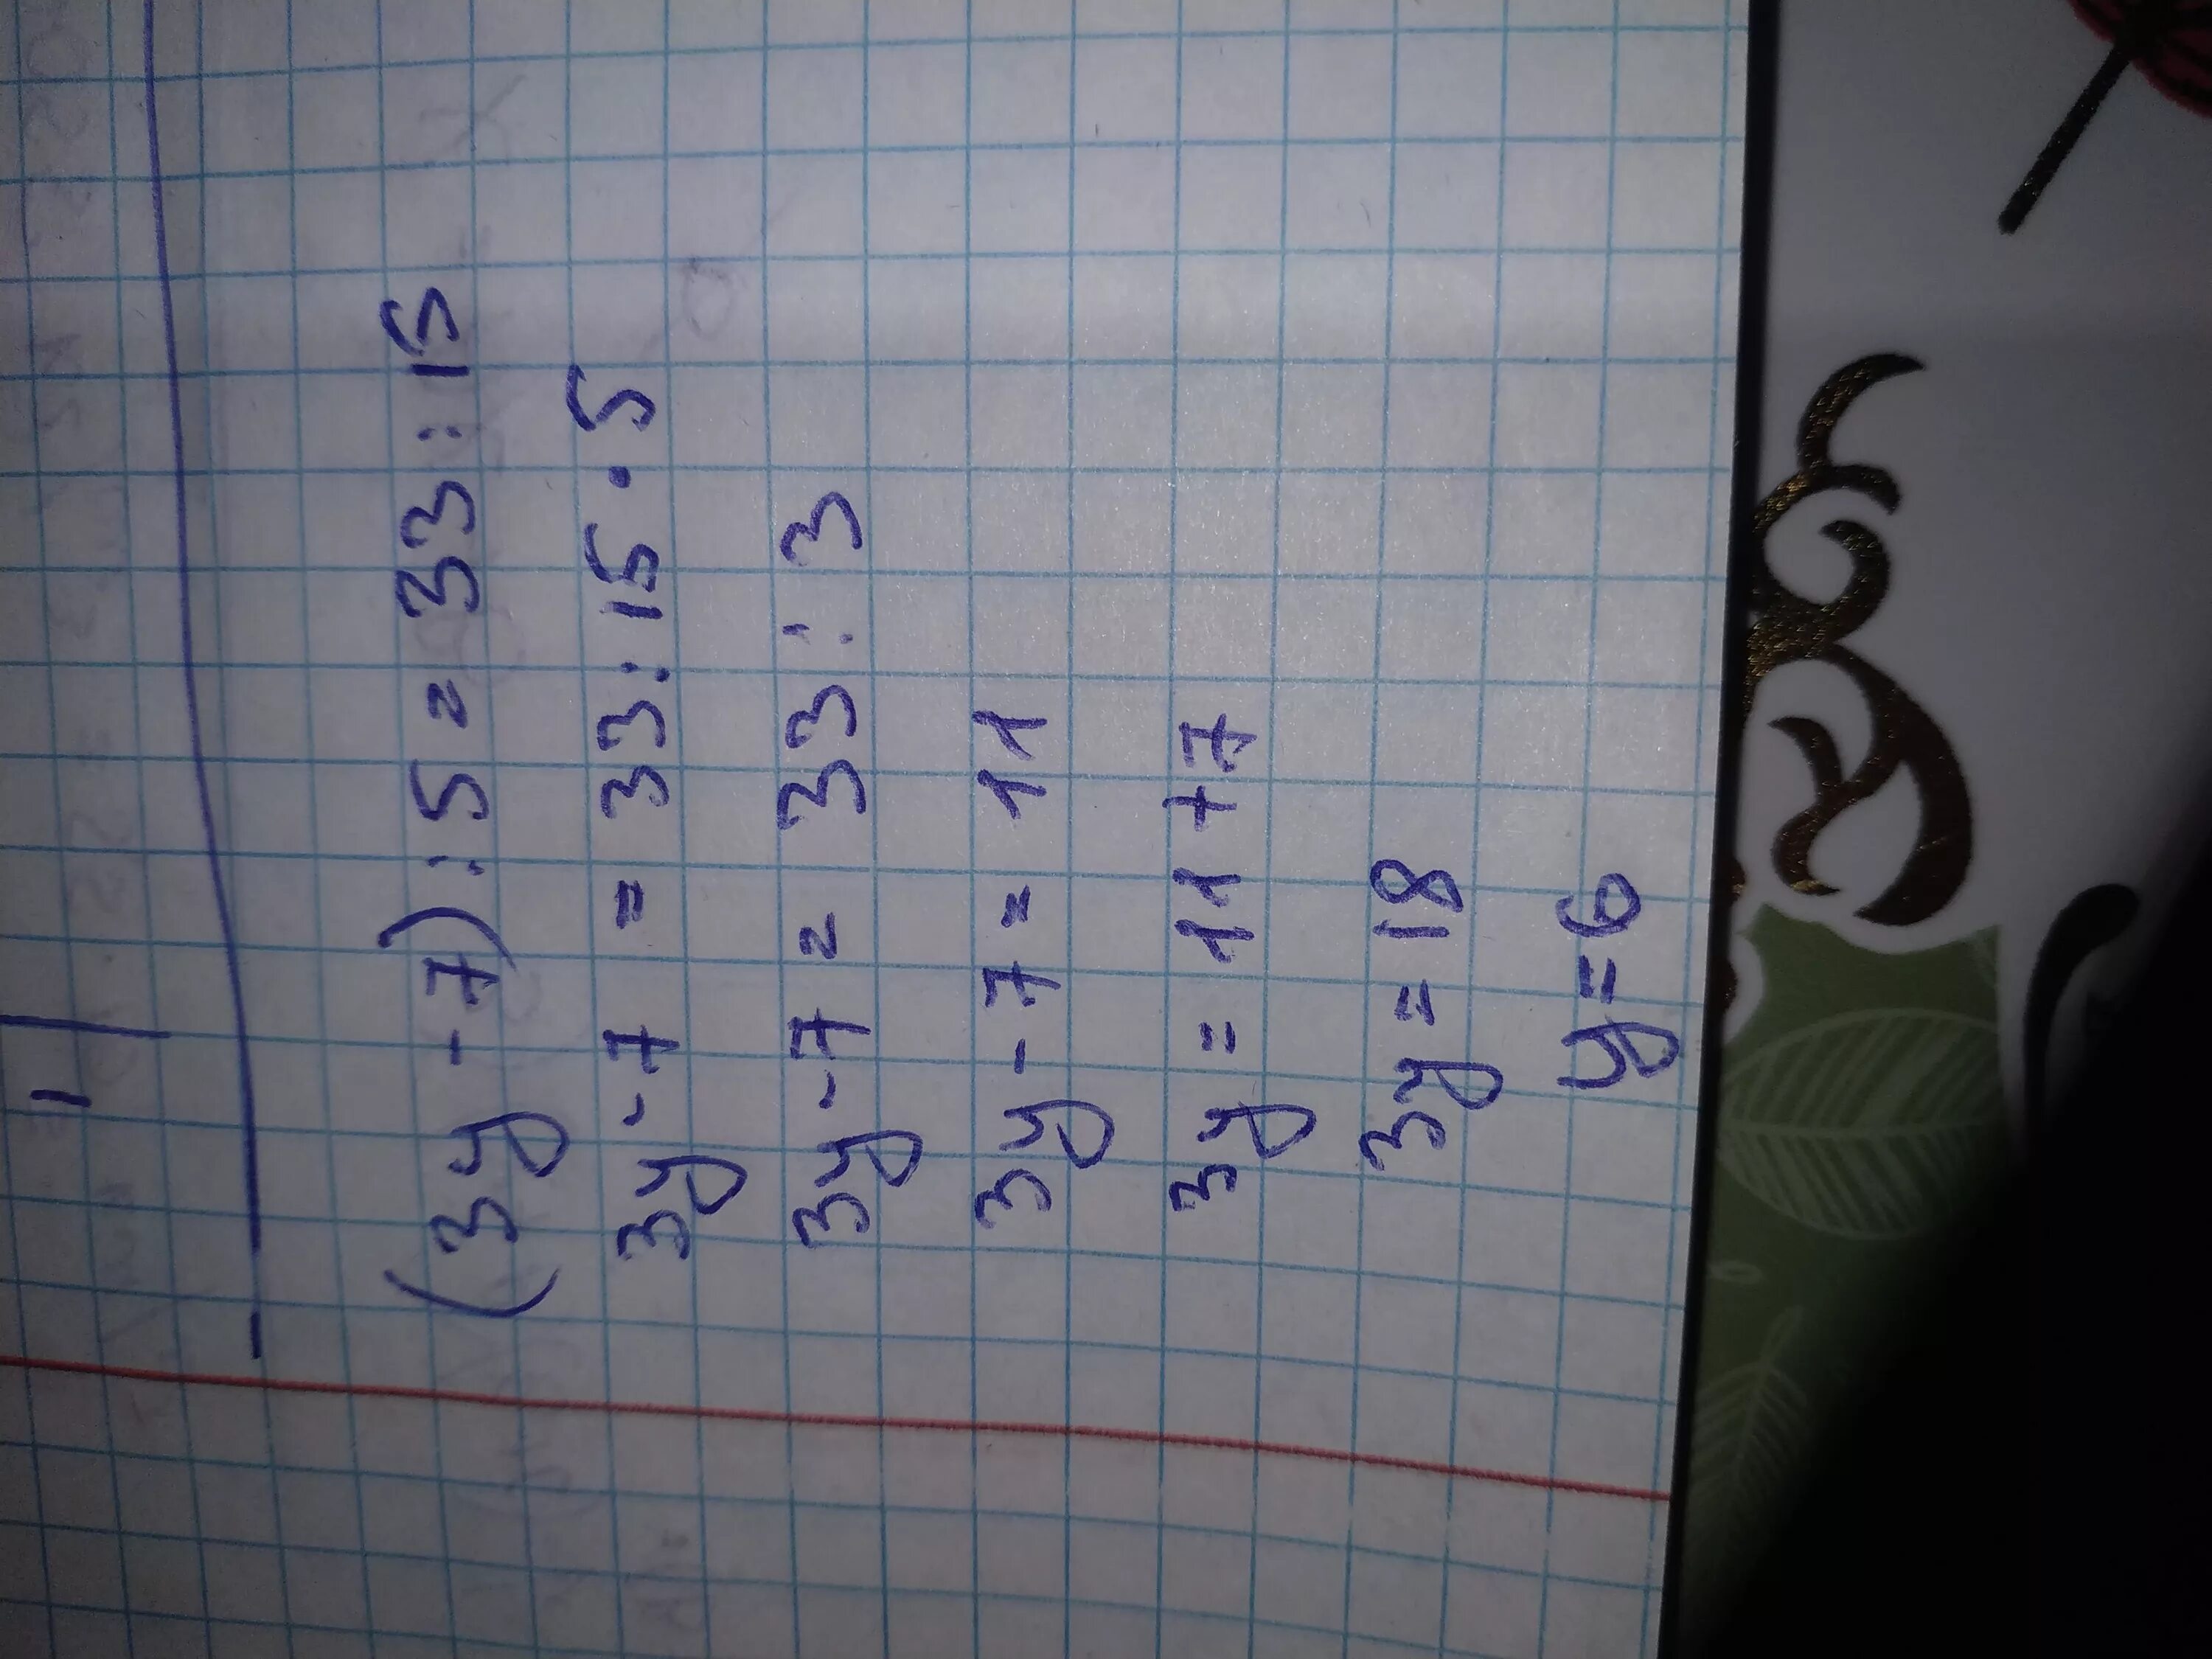 (3y - 7) : 5 = 33 : 15
3y - 7 = 33 : 15 · 5
3y - 7 = 33 : 3
3y - 7 = 11
3y = 11 + 7
3y = 18
y = 6